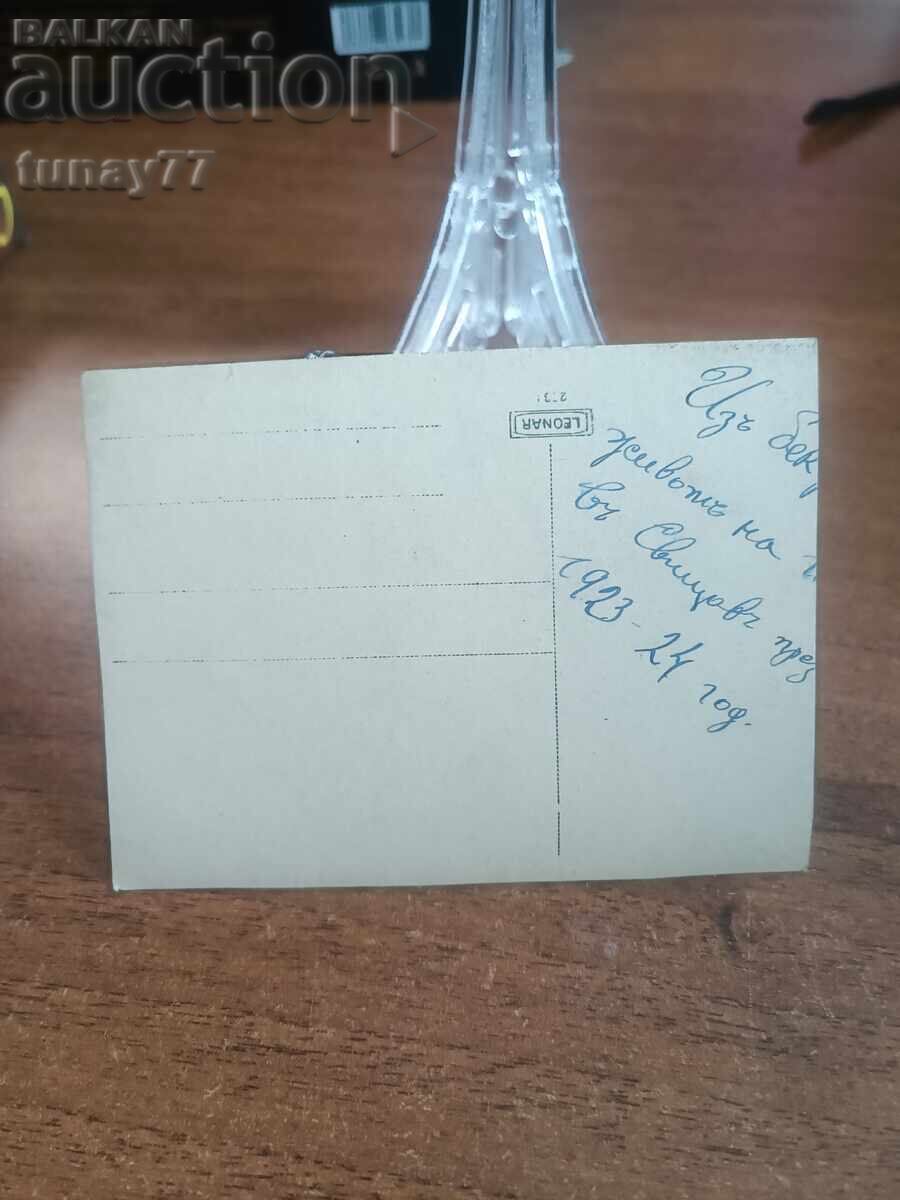 BALKAN
auction
tunay77
LEONAR
Изъ бек
животъ на
въ Свищовъ през
1923-24 год.